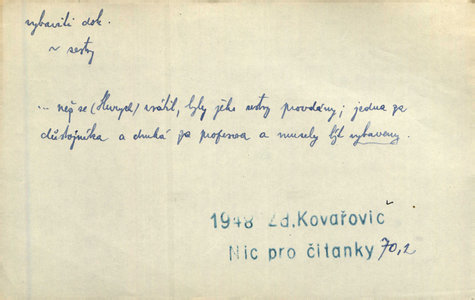 vybaviti dok.
~ sestry
... než se (Hurych) vrátil, byly jeho sestry provdány; jedna za
důstojníka a druhá za profesora a musely být vybaveny.
1948 Zd. Kovařovič
Nic pro čítanky 70,2